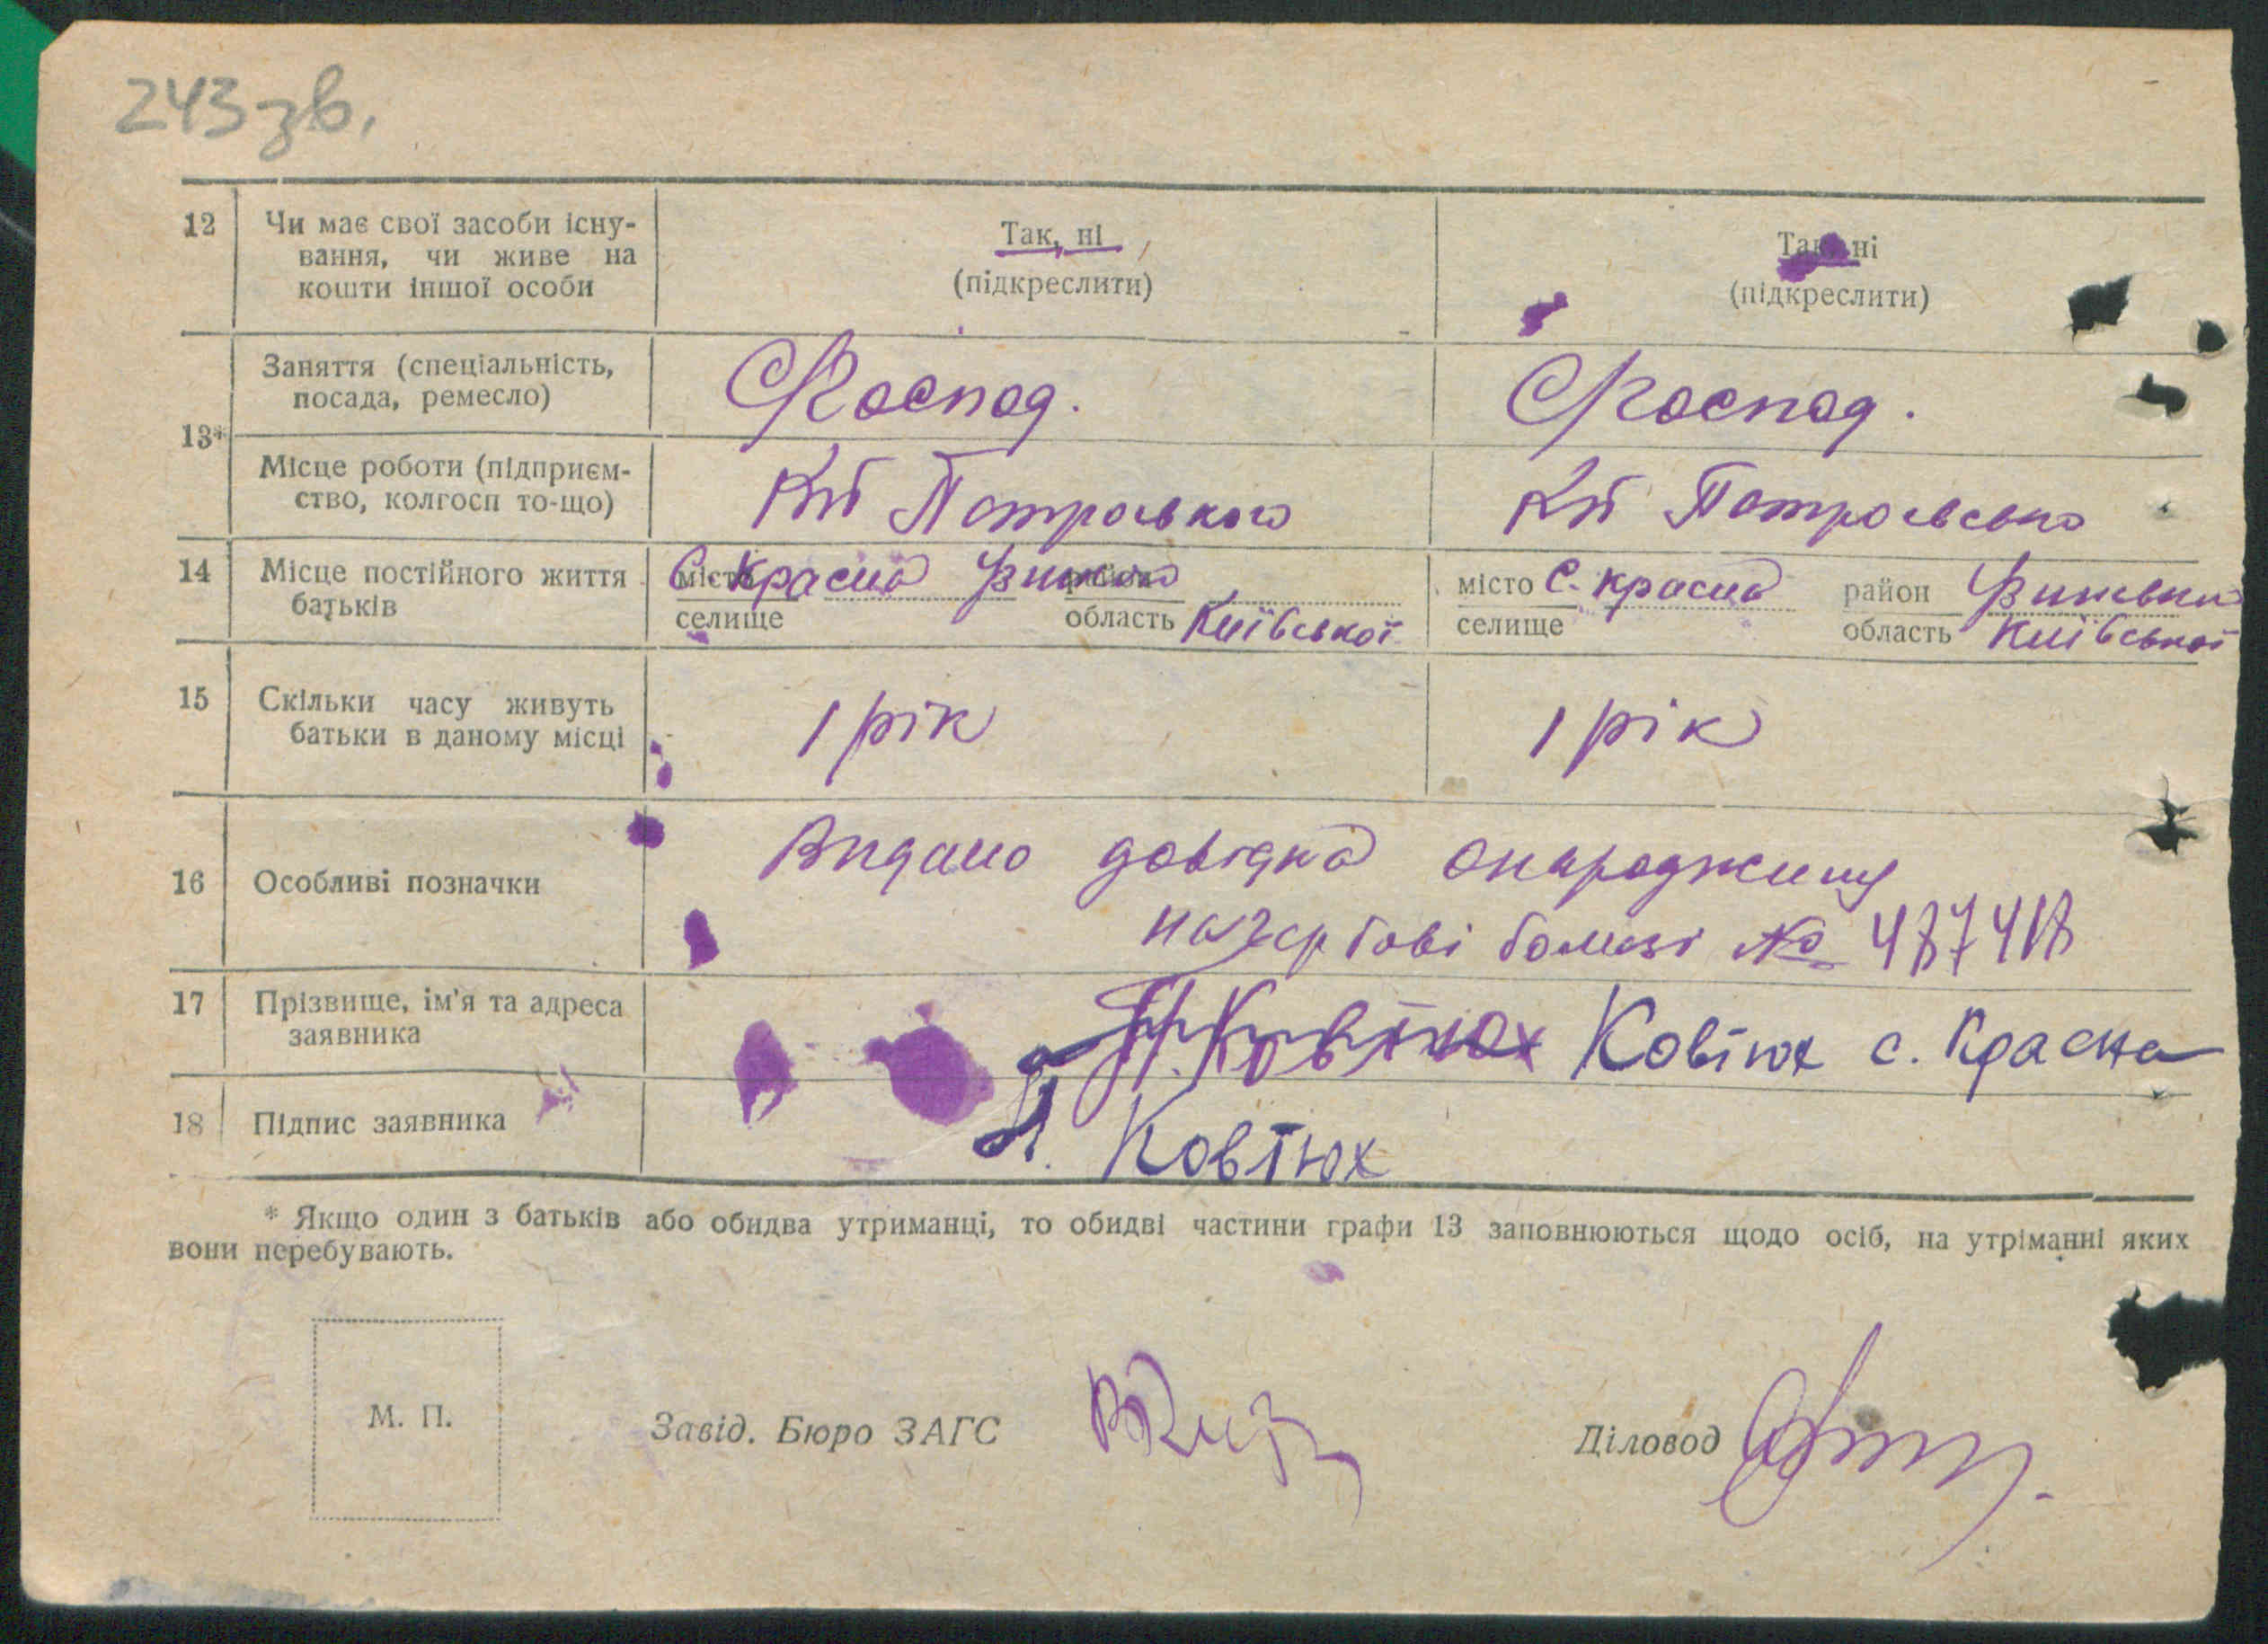 243 зв.
12 Чи має свої засоби існу-
вання, чи живе на
кошти іншої особи
Так, ні
(підкреслити)
Так, ні
(підкреслити)
13*
Заняття (спеціальність,
посада, ремесло)
Сгоспод.
Сгоспод.
Місце роботи (підприєм-
ство, колгосп то-що)
14 Місце постійного життя
батьків
місто С. Красна район
селище область Київської
місто с. Красна район
селище область Київської
15 Скільки часу живуть
батьки в даному місці
1 рік
1 рік
16 Особливі позначки
Видано довідка
№
17 Прізвище, ім'я та адреса
заявника
Ковтюх Ковтюх с. Красна
18 Підпис заявника
Ковтюх
* Якщо один з батьків або обидва утриманці, то обидві частини графи 13 заповнюються щодо осіб, на утріманні яких
вони перебувають.
М. П.
Завід. Бюро ЗАГС
Діловод